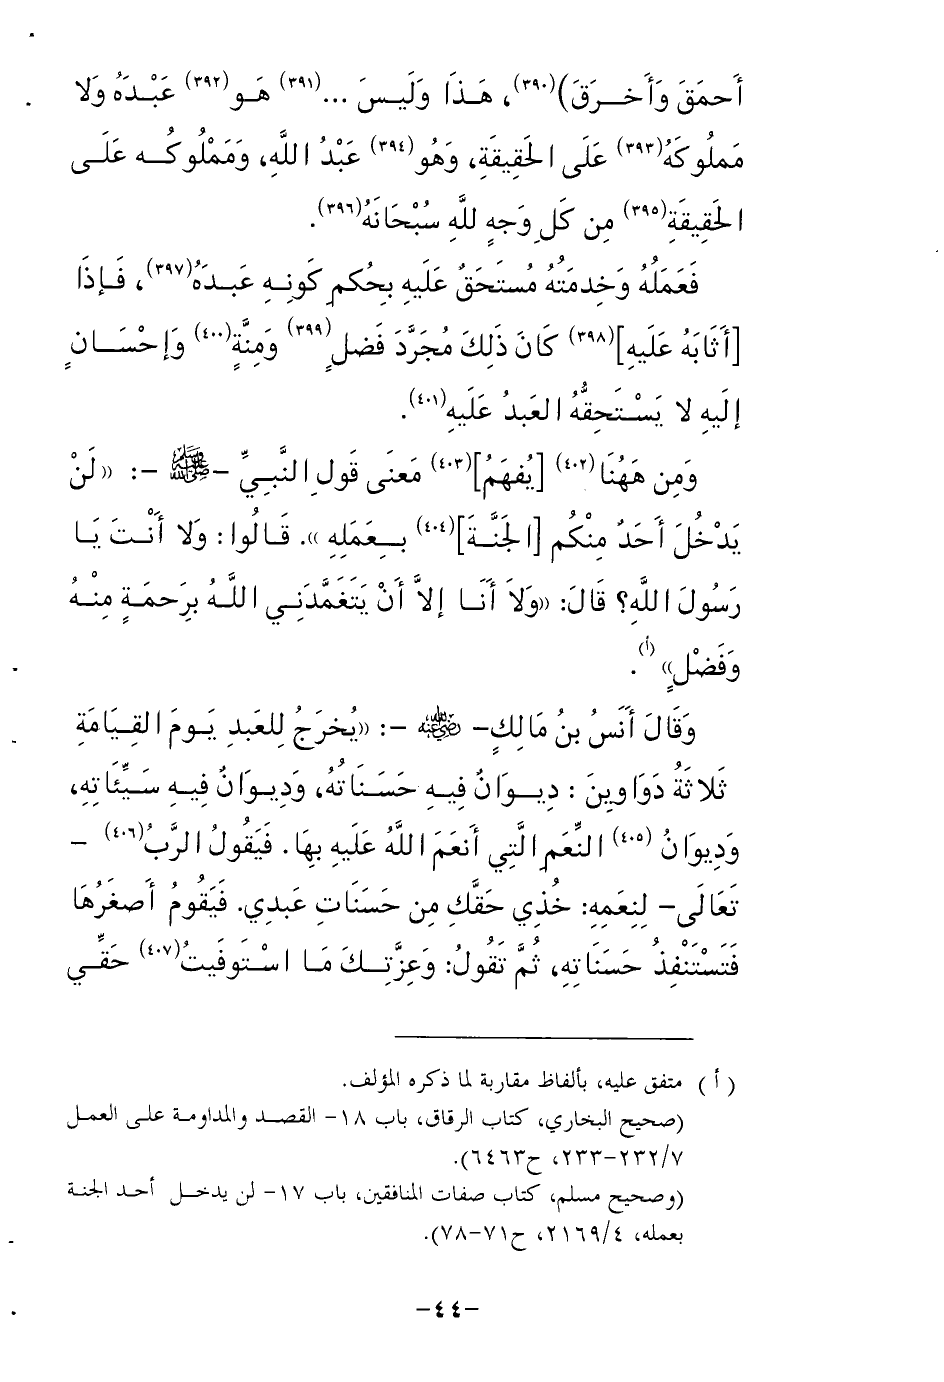 أَحمَقَ وَأَخــرَقَ)(٣٩٠)، هَـذَا وَلَيـسَ ...(٣٩١) هَـو(٣٩٢) عَبْـدَهُ وَلا
مَملُوكَهُ(٣٩٣) عَلَى الحَقِيقَةِ، وَهُو(٣٩٤) عَبْدُ اللَّهِ، وَمَمْلُوكُــه عَلَـى
الحَقِيقَةِ(٣٩٥) مِن كَلِ وَجهٍ للَّهِ سُبْحَانَهُ(٣٩٦).
فَعَمَلُهُ وَخِدمَتُهُ مُستَحَقٌ عَلَيهِ بِحُكمِ كَونِـهِ عَبـدَهُ(٣٩٧)، فَـإِذَا
[أَثَابَهُ عَلَيهِ](٣٩٨) كَانَ ذَلِكَ مُجَرَّدَ فَضـلٍ(٣٩٩) وَمِنَّةٍ(٤٠٠) وَإِحْسَــانٍ
إِلَيهِ لا يَسْـتَحِقُّهُ العَبدُ عَلَيهِ(٤٠١).
وَمِن هَهُنَا(٤٠٢) [يُفهَمُ](٤٠٣) مَعنَى قَولِ النَّبِيِّ -ﷺ -: «لَنْ
يَدْخُلَ أَحَدٌ مِنْكُم [الجَنَّـةَ](٤٠٤) بِــعَمَلِهِ». قَـالُوا: وَلا أَنْـتَ يَـا
رَسُولَ اللَّهِ؟ قَالَ: «وَلاَ أَنَـا إِلاَّ أَنْ يَتَغَمَّدَنِـي اللَّـهُ بِرَحمَـةٍ مِنـهُ
وَفَضْلٍ»(أ).
وَقَالَ أَنَسُ بنُ مَالِكٍ- رضي الله عنه -: «يُخرَجُ لِلعَبدِ يَـومَ القِـيَامَةِ
ثَلاثَةُ دَوَاوِينَ: دِيــوَانٌ فِيـهِ حَسَـنَاتهُ، وَدِيـوَانٌ فِيـهِ سَـيِّئَاتهِ،
وَدِيوَانُ(٤٠٥) النِّعَمِ الَّتِي أَنعَمَ اللَّهُ عَلَيهِ بِهَا. فَيَقُولُ الرَّبُ(٤٠٦) -
تَعَالَى- لِنِعَمِهِ: خُذِي حَقَّكِ مِن حَسَنَاتِ عَبدِي. فَيَقُومُ أَصغَرُهَا
فَتَسْتَنْفِذُ حَسَنَاتِهِ، ثُمَّ تَقُولُ: وَعِزَّتِـكَ مَـا اسْـتَوفَيتُ(٤٠٧) حَقِّــي
(أ) متفق عليه، بألفاظ مقاربة لما ذكره المؤلف.
(صحيح البخاري، كتاب الرقاق، باب ١٨- القصـد والمداومـة علـى العمـل
٢٣٢/٧-٢٣٣، ح٦٤٦٣).
(وصحيح مسلم، كتاب صفات المنافقين، باب ١٧- لن يدخـل أحـد الجنة
بعمله، ٢١٦٩/٤، ح٧١-٧٨).
-٤٤-